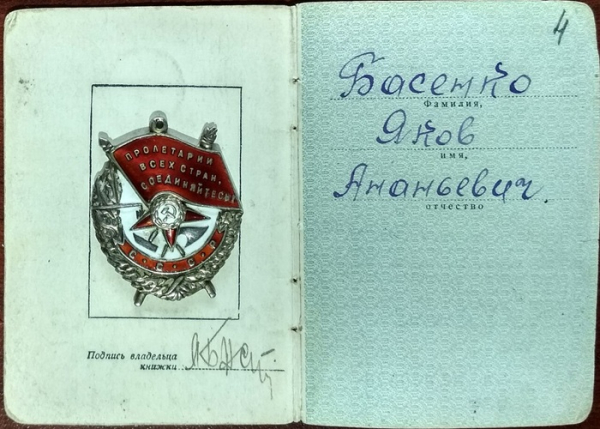 ПРОЛЕТАРИИ
ВСЕХ СТРАН,
СОЕДИНЯЙТЕСЬ!
С.С.С.Р
Подпись владельца
книжки
4
Басенко
Фамилия,
Яков
имя,
Ананьевич.
отчество